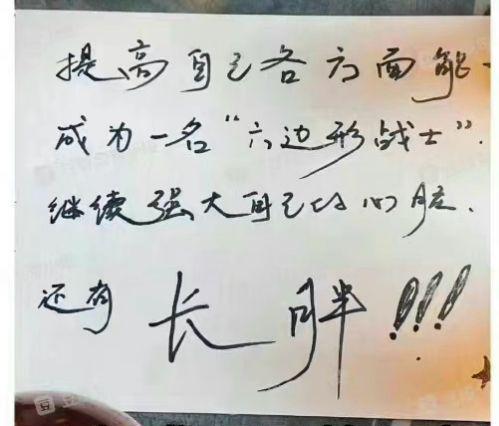 提高自己各方面能
成为一名“六边形战士”.
继续强大自己的心脏.
还有 长胖!!!